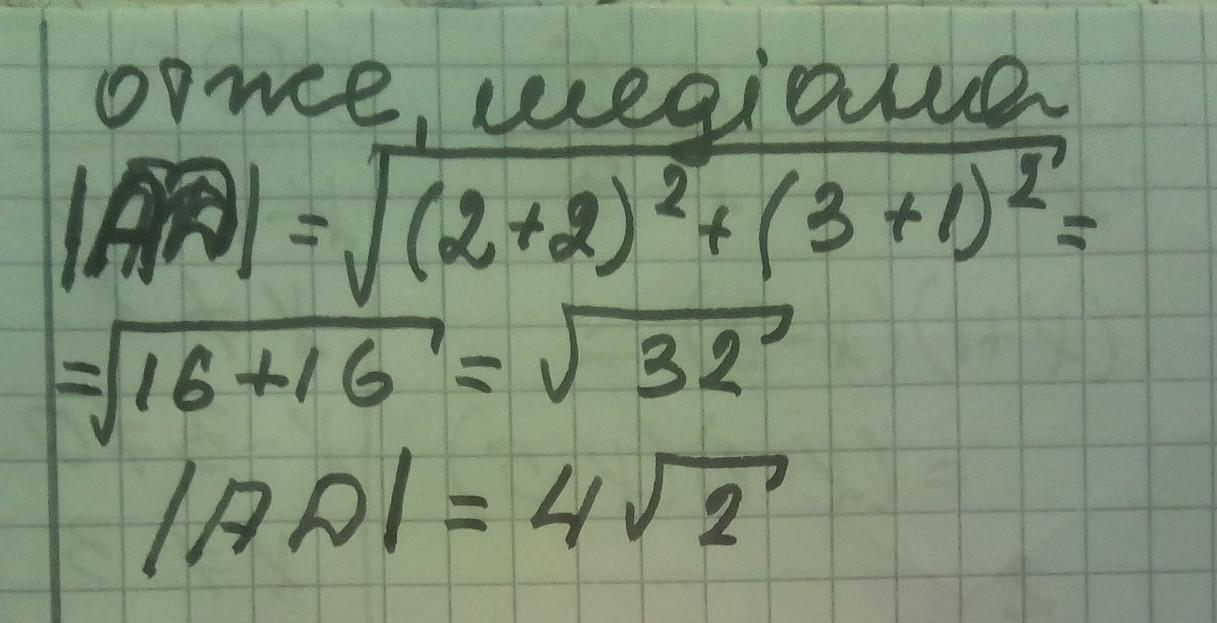 отже, медіана
|AD| = √(2+2)² + (3+1)² =
= √16+16 = √32
|AD| = 4√2